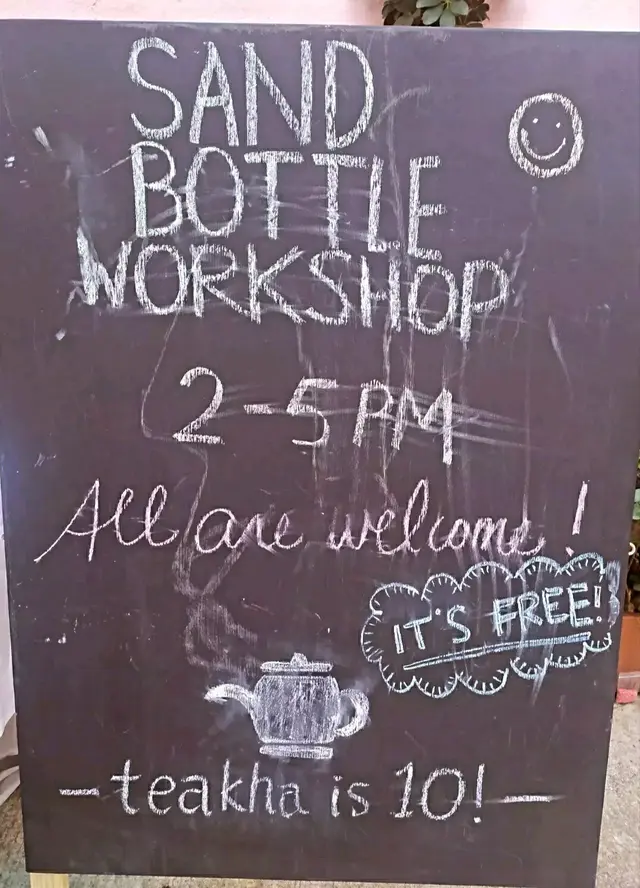 SAND
BOTTLE
WORKSHOP
2-5 PM
All are welcome!
IT'S FREE!
- teakha is 10! -